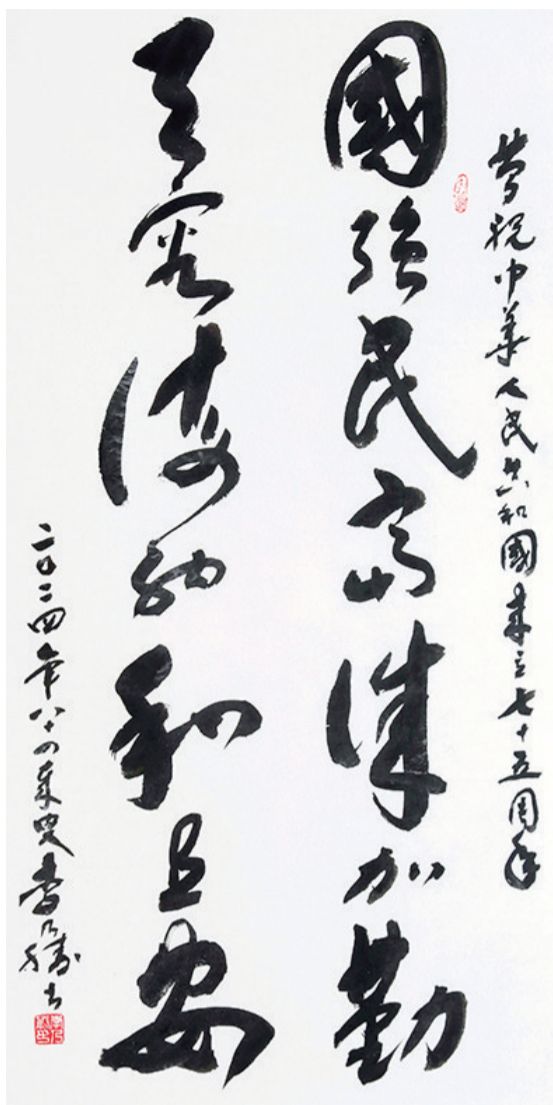 慶祝中華人民共和國成立七十五周年
國強民富誠加勤
天容海納和且安
二〇二四年八十四歲叟李乃书